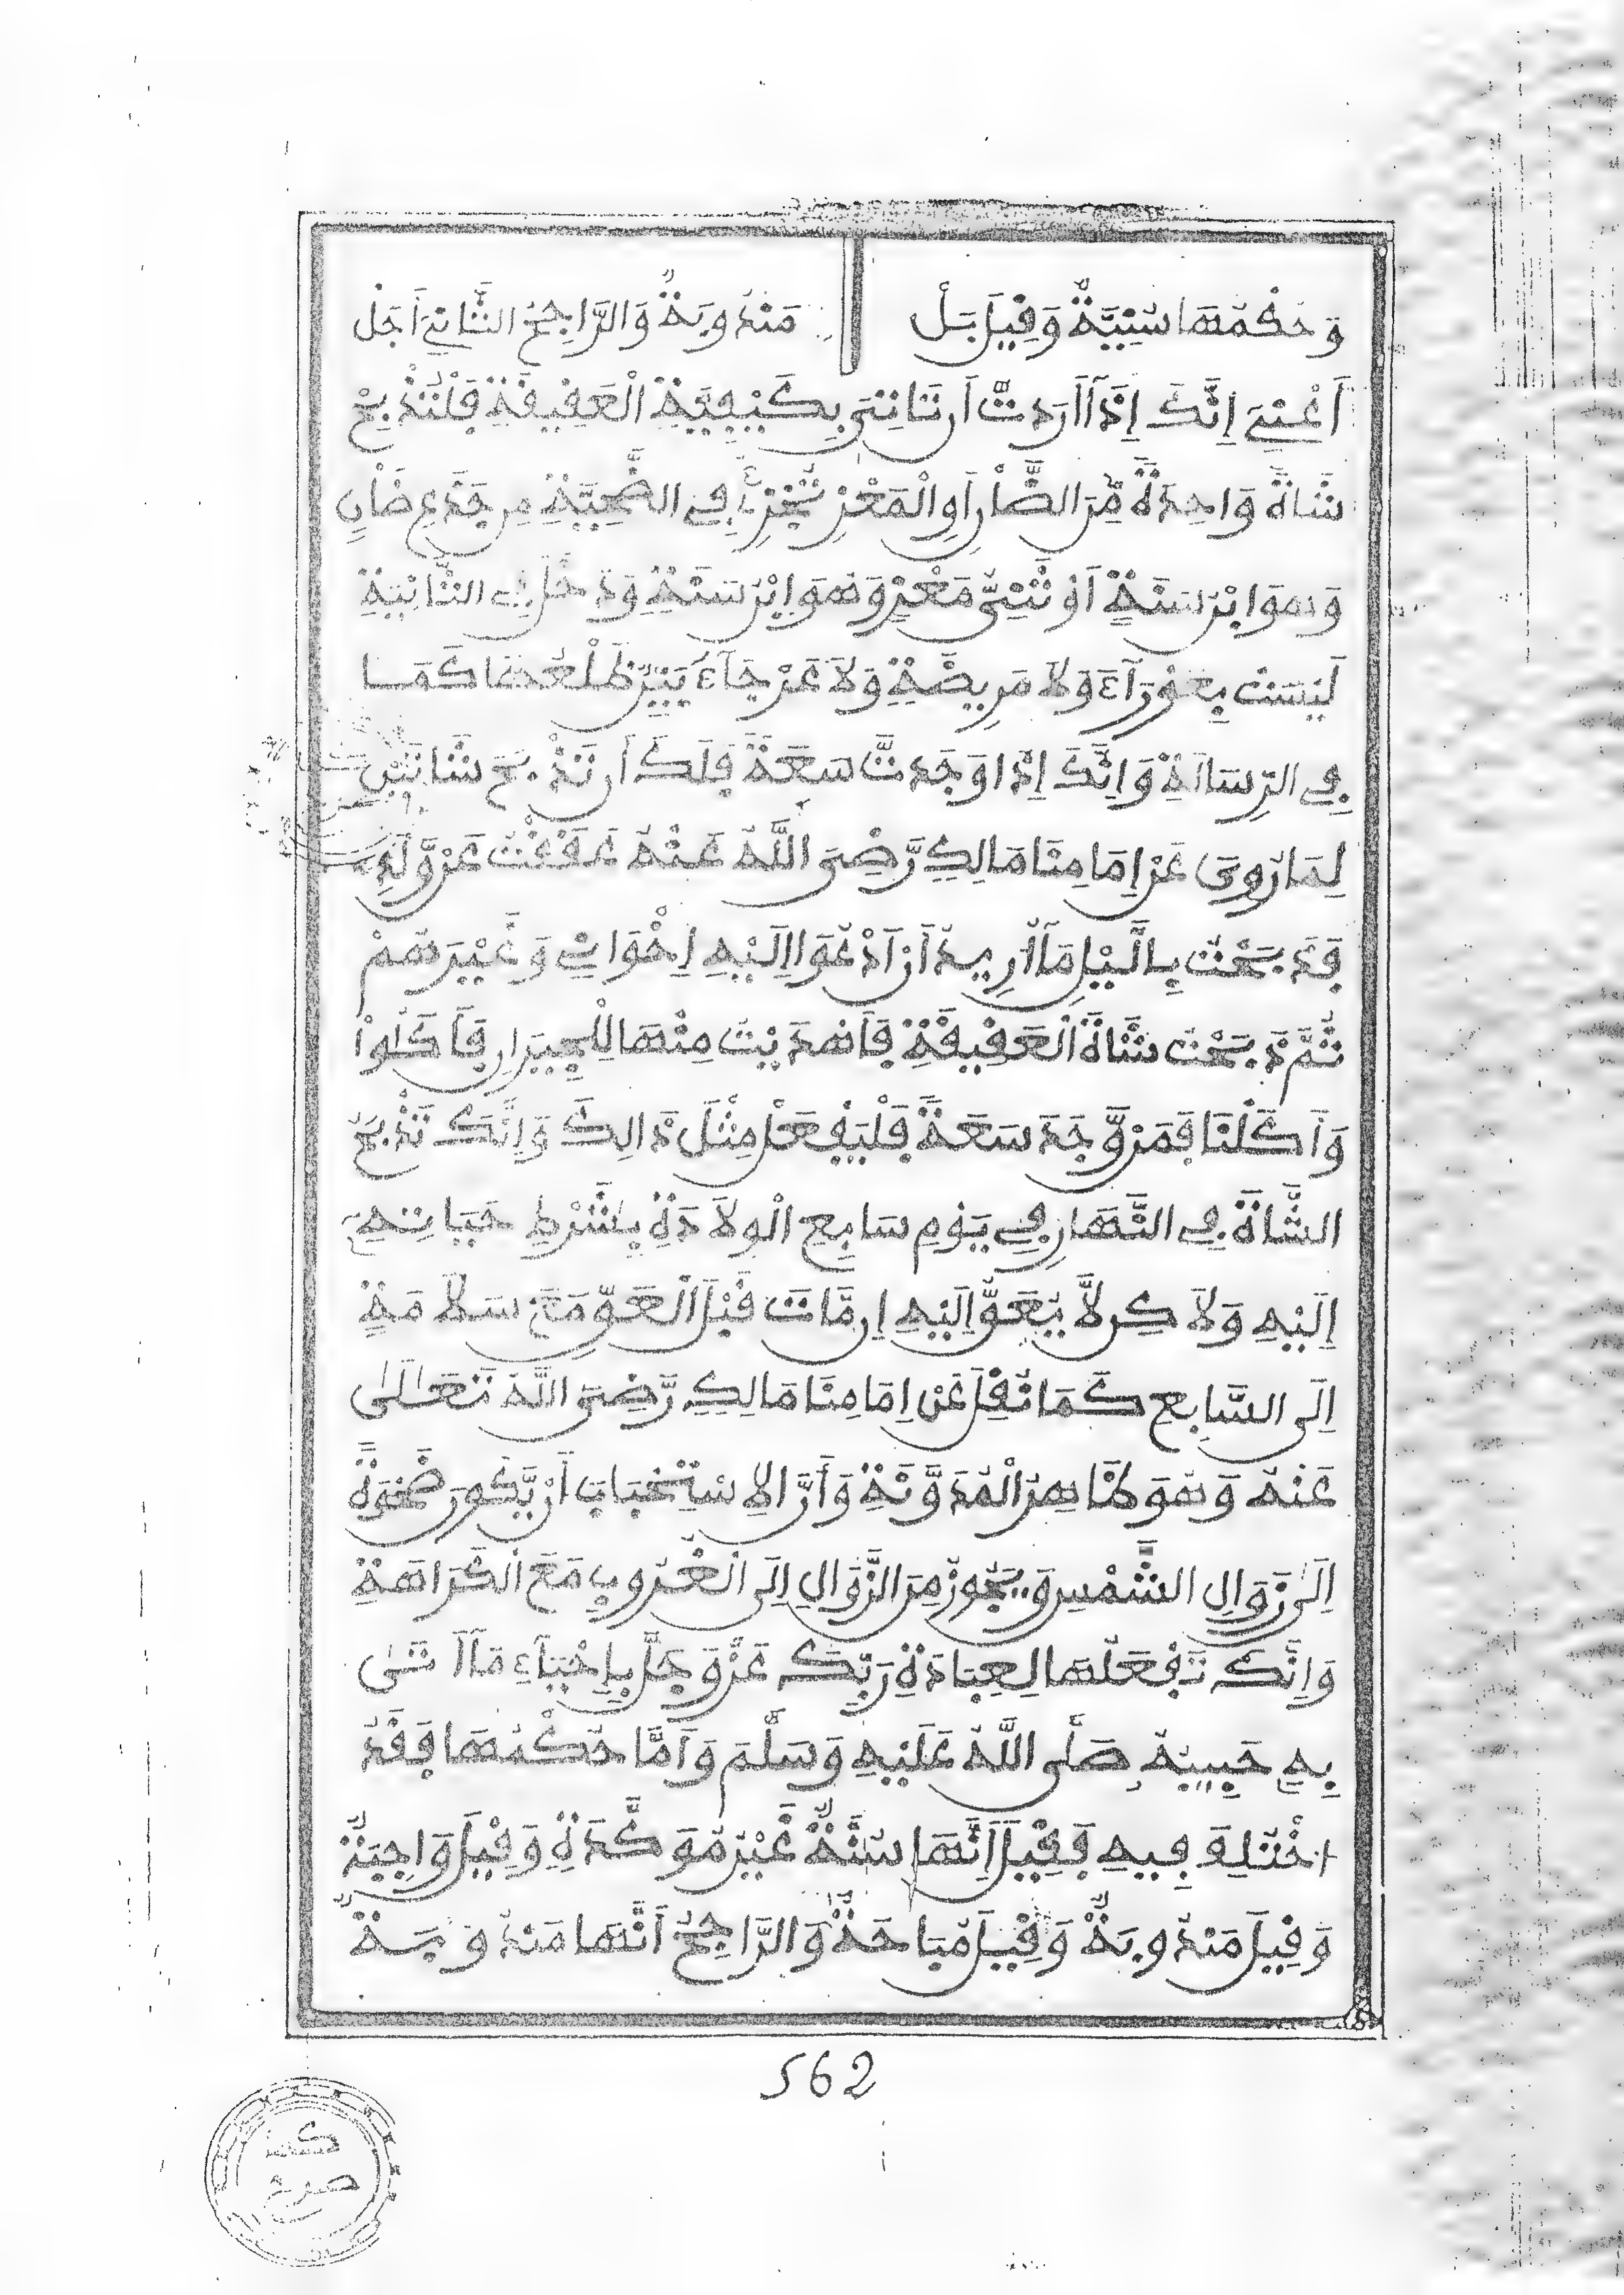 وَحُكْمُهَا سُنِّيَّةٌ وَقِيلَ بَلْ مَنْدُوبَةٌ وَالرَّاجِحُ الثَّانِي أَجَلْ
أَعْنِي إِنَّكَ إِذَا أَرَدتَّ أَن تَاتِيَ بِكَيْفِيَّةِ الْعَقِيقَةِ فَلْتَذْبَحْ
شَاةً وَاحِدَةً مِّنَ الضَّأْنِ أَوِ الْمَعْزِ تُجْزِئُ فِي الضَّحِيَّةِ مِن جَذَعِ ضَأْنٍ
وَهُوَ ابْنُ سَنَةٍ أَوْ ثَنِيِّ مَعْزٍ وَهُوَ ابْنُ سَنَةٍ وَدَخَلَ فِي الثَّانِيَةِ
لَيْسَتْ بِعَوْرَآءَ وَلَا مَرِيضَةٍ وَلَا عَرْجَآءَ بَيِّنٌ ظَلْعُهَا كَمَا
فِي الرِّسَالَةِ وَإِنَّكَ إِذَا وَجَدتَّ سَعَةً فَلَكَ أَن تَذْبَحَ شَاتَيْنِ
لِمَا رُوِيَ عَنْ إِمَامِنَا مَالِكٍ رَّضِيَ اللَّهُ عَنْهُ عَقَقْتُ عَن وَّلَدِي
فَذَبَحْتُ بِالَّيْلِ مَآ أُرِيدُ أَنْ أَدْعُوَا إِلَيْهِ إِخْوَانِي وَغَيْرَهُمْ
ثُمَّ ذَبَحْتُ شَاةَ الْعَقِيقَةِ فَأَهْدَيْتُ مِنْهَا لِلْجِيرَانِ فَأَكَلُواْ
وَأَكَلْنَا فَمَن وَّجَدَ سَعَةً فَلْيَفْعَلْ مِثْلَ ذَالِكَ وَإِنَّكَ تَذْبَحُ
الشَّاةَ فِي النَّهَارِ فِي يَوْمِ سَابِعِ الْوِلَادَةِ بِشَرْطِ حَيَاتِهِ
إِلَيْهِ وَلَاكِن لَّا يُعَقُّ إِلَيْهِ إِن مَّاتَ قَبْلَ الْعَقِّ مَعَ سَلَامَةٍ
إِلَى السَّابِعِ كَمَا نُقِلَ عَنْ إِمَامِنَا مَالِكٍ رَّضِيَ اللَّهُ تَعَالَى
عَنْهُ وَهُوَ ظَاهِرُ الْمُدَوَّنَةِ وَأَنَّ الِاسْتِحْبَابَ أَنْ يَّكُونَ ضَحْوَةً
إِلَى زَوَالِ الشَّمْسِ وَيَجُوزُ مِنَ الزَّوَالِ إِلَى الْغُرُوبِ مَعَ الْكَرَاهَةِ
وَإِنَّكَ تَفْعَلُهَا لِعِبَادَةِ رَبِّكَ عَزَّ وَجَلَّ بِإِحْيَآءِ مَآ أَتَى
بِهِ حَبِيبُهُ صَلَّى اللَّهُ عَلَيْهِ وَسَلَّمَ وَأَمَّا حُكْمُهَا فَقَدُ
اخْتُلِفَ فِيهِ فَقِيلَ إِنَّهَا سُنَّةٌ غَيْرُ مُوَكَّدَةٍ وَقِيلَ وَاجِبَةٌ
وَقِيلَ مَنْدُوبَةٌ وَقِيلَ مُبَاحَةٌ وَالرَّاجِحُ أَنَّهَا مَنْدُوبَةٌ
562